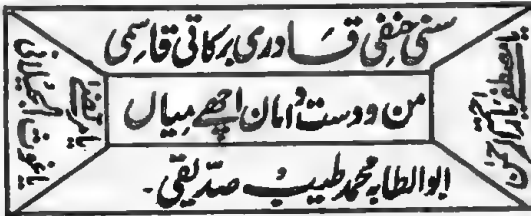 سنی حنفی قادری برکاتی قاسمی
من ودست و امان اچھے میاں
ابوالطاہر محمد طیب صدیقی۔
یا غوث الجیلانی